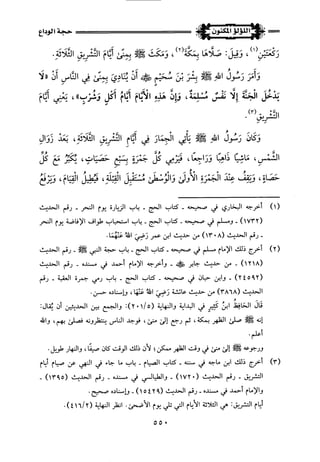 اللؤلؤ المكنون
حجة الوداع
رَكْعَتَيْنِ(١)، وَقِيلَ: صَلَّاهَا بِمَكَّةَ(٢)، وَمَكَثَ ﷺ بِمِنًى أَيَّامَ التَّشْرِيقِ الثَّلَاثَةِ.
وَأَمَرَ رَسُولُ اللهِ ﷺ بِشْرَ بْنَ سُحَيْمٍ أَنْ يُنَادِيَ بِمِنًى فِي النَّاسِ أَنْ «لَا
يَدْخُلَ الْجَنَّةَ إِلَّا نَفْسٌ مُسْلِمَةٌ، وَإِنَّ هَذِهِ الْأَيَّامَ أَيَّامُ أَكْلٍ وَشُرْبٍ»، يَعْنِي أَيَّامَ
التَّشْرِيقِ(٣).
وَكَانَ رَسُولُ اللهِ ﷺ يَأْتِي الْجِمَارَ فِي أَيَّامِ التَّشْرِيقِ الثَّلَاثَةِ، بَعْدَ زَوَالِ
الشَّمْسِ، مَاشِيًا ذَاهِبًا وَرَاجِعًا، فَيَرْمِي كُلَّ جَمْرَةٍ بِسَبْعِ حَصَيَاتٍ، يُكَبِّرُ مَعَ كُلِّ
حَصَاةٍ، وَيَقِفُ عِنْدَ الْجَمْرَةِ الْأُولَى وَالْوُسْطَى مُسْتَقْبِلَ الْقِبْلَةِ، فَيُطِيلُ الْقِيَامَ، وَيَرْفَعُ
(١) أخرجه البخاري في صحيحه - كتاب الحج - باب الزيارة يوم النحر - رقم الحديث
(١٧٣٢) - ومسلم في صحيحه - كتاب الحج - باب استحباب طواف الإفاضة يوم النحر
- رقم الحديث (١٣٠٨) من حديث ابن عمر رَضِيَ اللهُ عَنْهُمَا.
(٢) أخرج ذلك الإمام مسلم في صحيحه - كتاب الحج - باب حجة النبي ﷺ - رقم الحديث
(١٢١٨) - من حديث جابر - وأخرجه الإمام أحمد في مسنده - رقم الحديث
(٢٤٥٩٢) - وابن حبان في صحيحه - كتاب الحج - باب رمي جمرة العقبة - رقم
الحديث (٣٨٦٨) من حديث عائشة رَضِيَ اللهُ عَنْهَا، وإسناده حسن.
قَالَ الْحَافِظُ ابْنُ كَثِيرٍ في البداية والنهاية (٢٠١/٥): والجمع بين الحديثين أن يُقال:
إنه ﷺ صلى الظهر بمكة، ثم رجع إلى منى، فوجد الناس ينتظرونه فصلى بهم، والله
أعلم.
ورجوعه ﷺ إلى منى في وقت الظهر ممكن؛ لأن ذلك الوقت كان صيفًا، والنهار طويل.
(٣) أخرج ذلك ابن ماجه في سننه - كتاب الصيام - باب ما جاء في النهي عن صيام أيام
التشريق - رقم الحديث (١٧٢٠) - والطيالسي في مسنده - رقم الحديث (١٣٩٥) -
والإمام أحمد في مسنده - رقم الحديث (١٥٤٢٩) - وإسناده صحيح.
أيام التشريق: هي الثلاثة الأيام التي تلي يوم الأضحى. انظر النهاية (٤١٦/٢).
٥٥٠